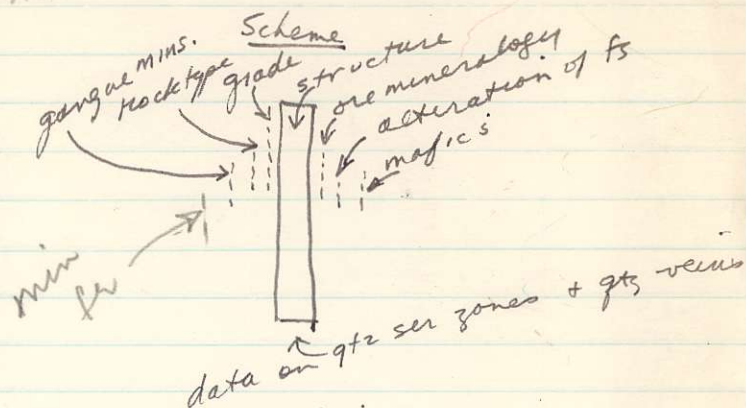 Scheme
gangue mins.
rock type
grade
structure
ore mineralogy
alteration of fs
mafics
min
data on qtz ser zones + qtz veins